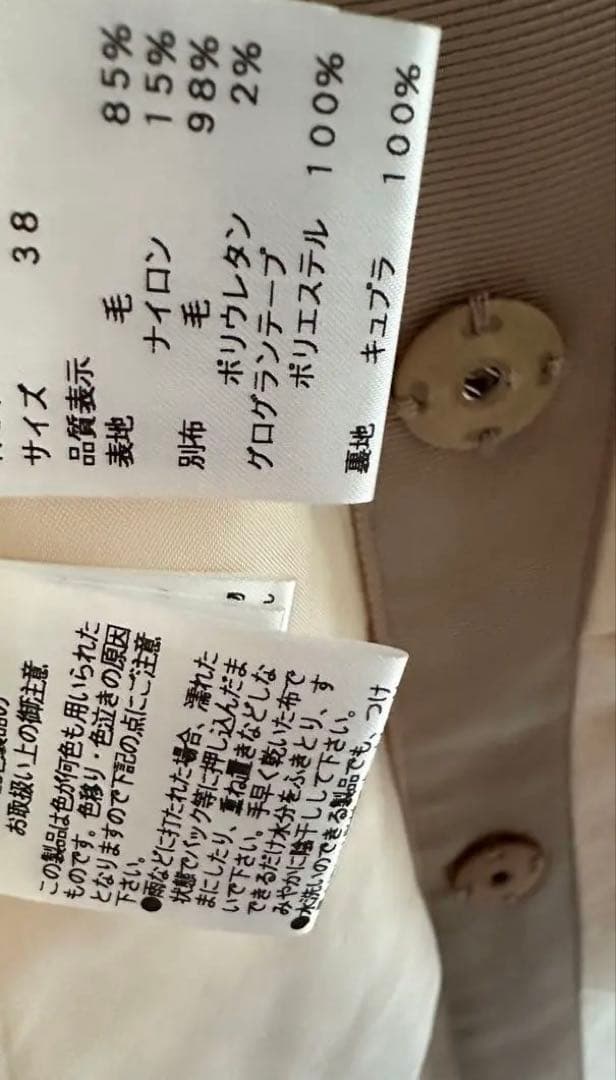 サイズ 38
品質表示
表地 毛 85%
ナイロン 15%
別布 毛 98%
ポリウレタン 2%
グログランテープ
ポリエステル 100%
裏地 キュプラ 100%
お取扱い上の御注意
この製品は色が何色も用いられた
ものです。色移り・色泣きの原因
となりますので下記の点にご注意
下さい。
●雨などに打たれた場合、濡れた
状態でバック等に押し込んだま
まにしたり、重ね置きなどしな
いで下さい。手早く乾いた布で
できるだけ水分をふきとり、す
みやかに陰干しして下さい。
●水洗いのできる製品でも、つけ